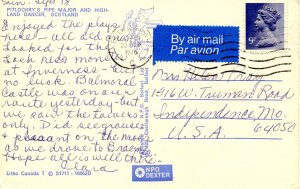 Sun - Sept 18
PITLOCHRY'S PIPE MAJOR AND HIGH-
LAND DANCER, SCOTLAND
Enjoyed the plays
here - all did and
Looked for the
Loch ness monster
at Inverness but
no luck. Balmoral
Castle was on our
route yesterday - but
we saw the taverns
only. Did see grouse
& pheasant on the moor
as we drove to Braemar
Hope all is well there -
Clara
Litho Canada T © S1711 - 16952D
By air mail
Par avion
9P
Miss Helen
1316 W. Truman Road
Independence, Mo.
U.S.A. 64050
NPO
DEXTER